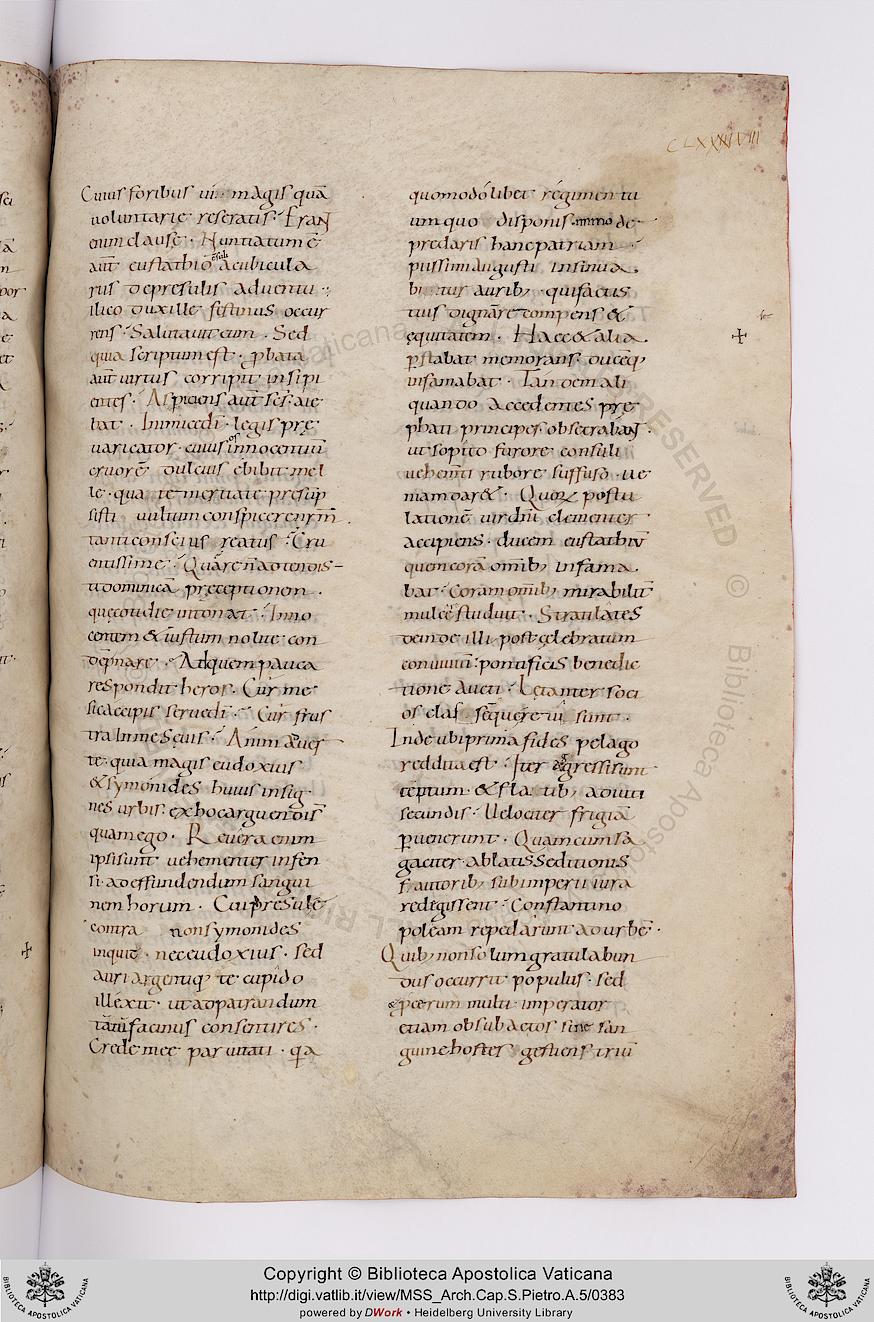 CLXXXVIII
Cuius foribus vi · magis quā
voluntarie reseratis · frang
enim clause · Nuntiatum ē
aut̄ eustathio c̄suli a cubicula
riis de presulis adventu ·
ilico dux ille festinus occur
rens · Salutavit eum · Sed
quia scriptum est · ꝓbata
aut̄ virtus corripit insipi
entes · Aspiciens aut̄ scs̄ · aie
bat · Inmicedi · legis pre
varicator · cuius os innocentiū
cruore dulcius ebibit mel
le · qua temeritate presūp
sisti vultum conspicere nr̄m
tanti conscius reatus · Cru
entissime · Quare n̄ adtendis
ti dominicā preceptionem ·
quę cotidie intonat · Inno
centem & iustum nolite con
dēpnare · Ad quem pauca
respondit heros · Cur me
sic accipis servedī · Cur frus
tra in me sevis · Animadver
te quia magis eudoxius
& symonides huius insig
nes urbis ex hoc arguendi s̄
quam ego · Revera enim
ipsi sunt vehementer infen
si · ad effundendum sangui
nem horum · Cui presule
contra non symonides
inquit · nec eudoxius · sed
auri argentiq; te cupido
illexit · ut ad patrandum
tantū facinus consentires ·
Crede mee parvitati · q̄a
quomodolibet regimen tu
um quo disponis immo de
predaris hanc patriam ·
piissimi augusti insinua
bitur auribꝫ · qui factis
tuis dignā recompenset
ęquitatem · Haec & alia
ꝑstabat memorans · ducēq;
infamabat · Tandem ali
quando accedentes pre
phati principes obsecrabant ·
ut sopito furore consuli
vehemēti rubore suffuso · ve
niam daret · Quorꝫ postu
lationē vir dn̄i clementer
accipiens · ducem eustathiū
quem corā omībꝫ infama
bat · Coram omībꝫ mirabilit̄
mulcere studuit · Stratilates
deinde illi post celebratum
convivium · pontificis benedic
tione aucti · Letanter soci
os clas sequere vi sunt ·
Inde ubi prima fides pelago
reddita est · Iter aggressi sunt
ceptum · & flatibꝫ adiuti
secundis · Velociter frigiā
ꝑvenerunt · Quam cum sa
gaciter · ablatis seditionis
fautoribꝫ sub imperii iura
redegissent · Constantino
poleam repedarunt ad urbē ·
Quibꝫ non solum gratulabun
dus occurrit populus · sed
& p̄cerum multi · imperator
etiam ob subactos sine san
guine hostes gestiens triū
Copyright © Biblioteca Apostolica Vaticana
http://digi.vatlib.it/view/MSS_Arch.Cap.S.Pietro.A.5/0383
powered by DWork • Heidelberg University Library